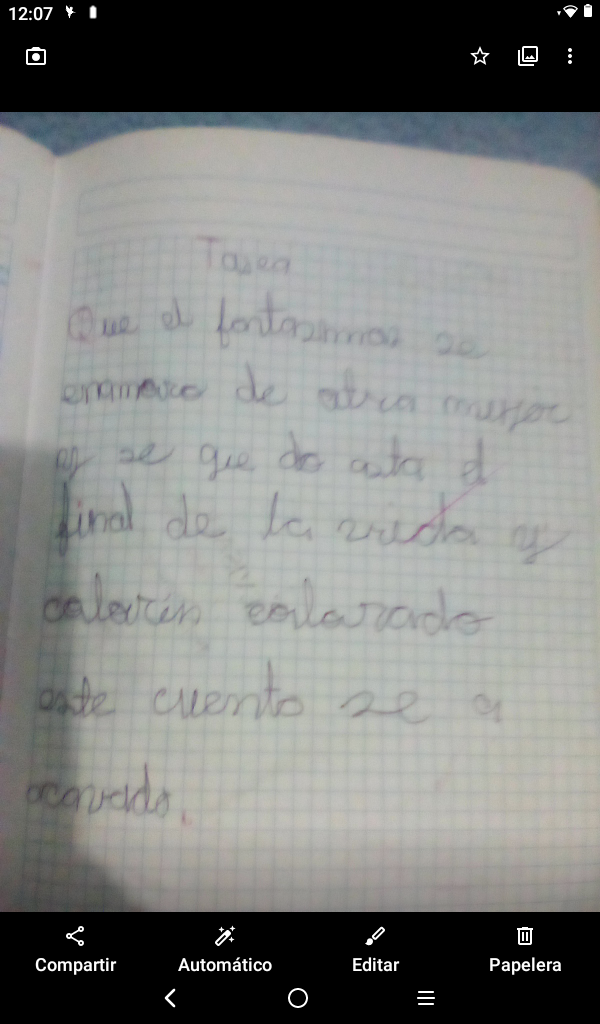 12:07
Tarea
Que el fantasmas se
enamoro de otra muger
y se que do asta el
final de la vida y
colorin colorado
este cuento se a
acavado.
Compartir
Automático
Editar
Papelera